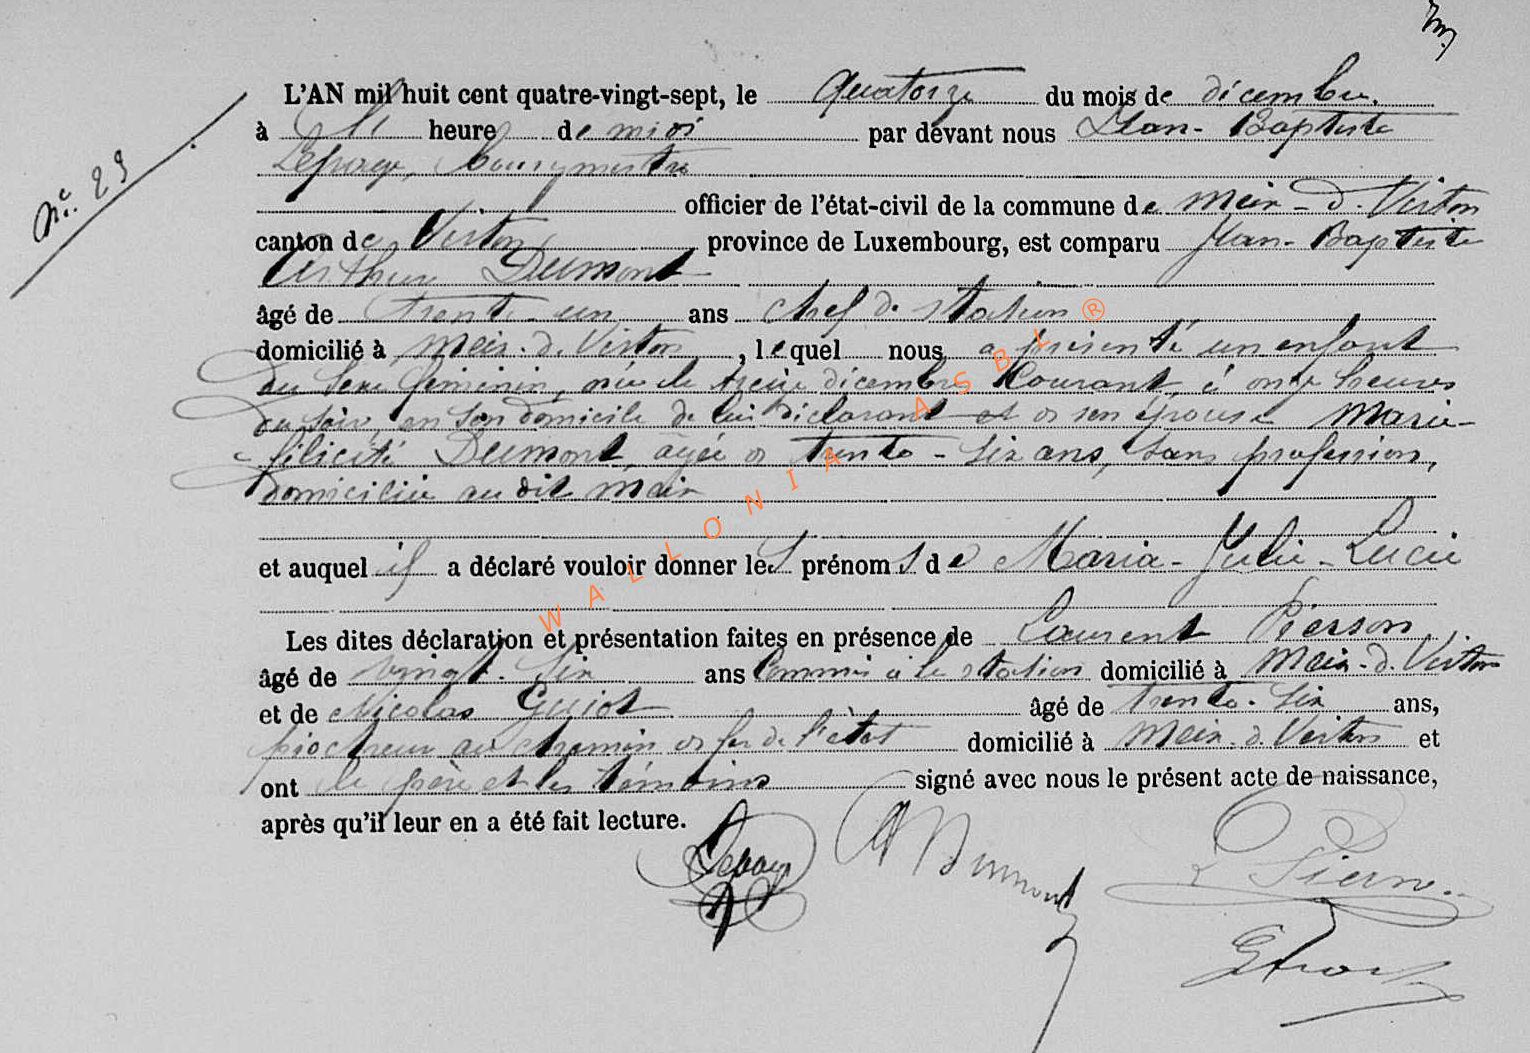 L'AN mil huit cent quatre-vingt-sept, le quatorze du mois de décembre,
à heure de midi par devant nous Jean-Baptiste
N° 29
Lepage, bourgmestre
officier de l'état-civil de la commune de Meix-d.-Virton
canton de Virton, province de Luxembourg, est comparu Jean-Baptiste
Arthur Dumont
âgé de trente-un ans chef de station
domicilié à Meix-d.-Virton, lequel nous a présenté un enfant
du sexe féminin, née le treize décembre courant, à onze heures
du soir, en son domicile de lui déclarant et de son épouse Marie-
félicité Dumont, agée de trente-six ans, sans profession,
domiciliée au dit Meix
et auquel il a déclaré vouloir donner les prénoms de Maria-Julie-Lucie
Les dites déclaration et présentation faites en présence de Laurent Pierson
âgé de vingt-six ans commis à la station domicilié à Meix-d.-Virton
et de Nicolas Guiot âgé de trente-six ans,
piocheur au chemin de fer de l'état domicilié à Meix-d.-Virton et
ont le père et les témoins signé avec nous le présent acte de naissance,
après qu'il leur en a été fait lecture.
Lepage A Dumont L Pierson
WALLONIA ASBL ®